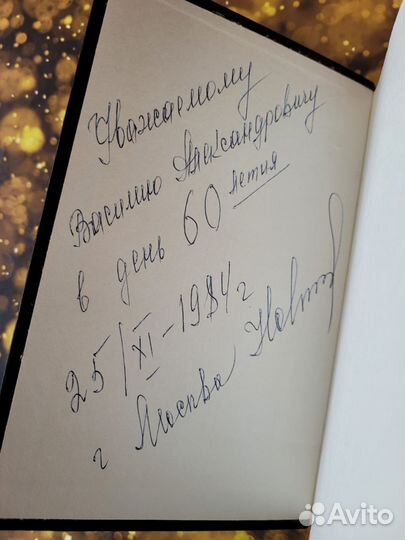 Уважаемому
Василию Александровичу
в день 60 летия
25/XI-1984 г
г Москва
Avito